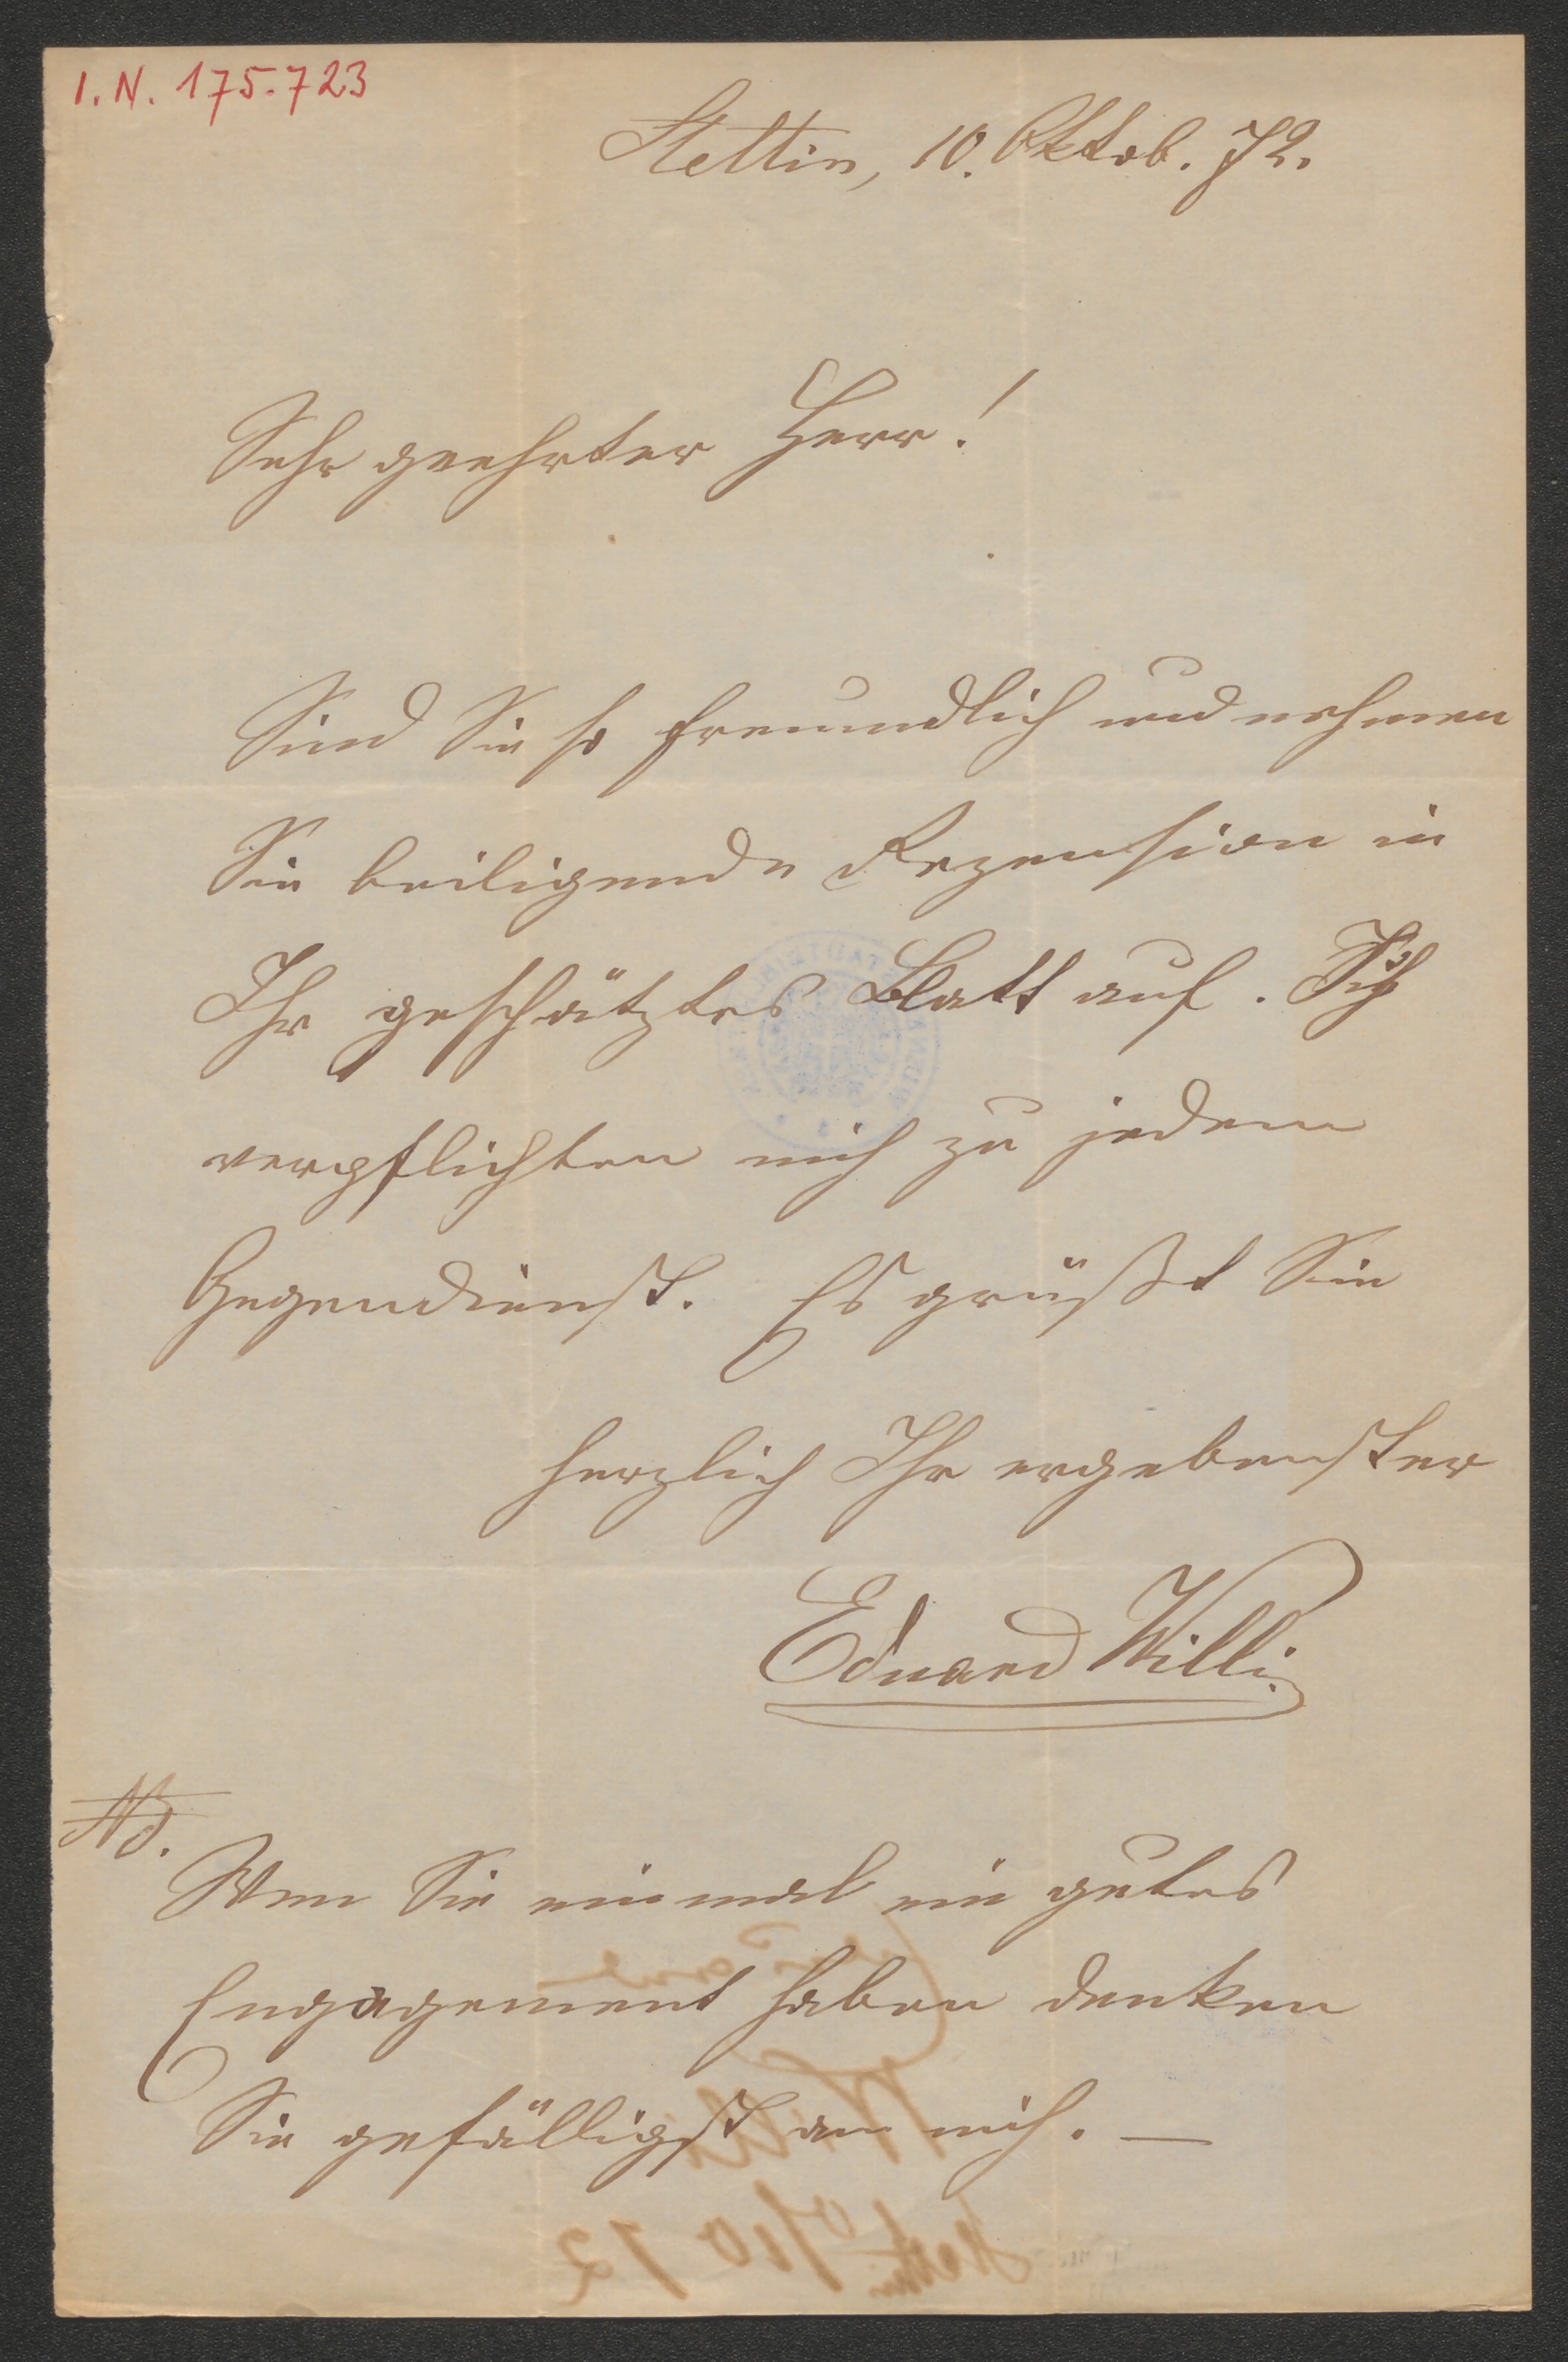 I. N. 175.723
Stettin, 10. Oktob. 72.
Sehr geehrter Herr!
Sind Sie so freundlich und nehmen
Sie beiligende Rezension in
Ihr geschätztes Blatt auf. Sich
verpflichten mich zu jedem
Gegendienst. Es grüßt Sie
herzlich Ihr ergebenster
Eduard Willi
NB.
Wenn Sie einmal ein gutes
Engagement haben denken
Sie gefälligst an mich. —